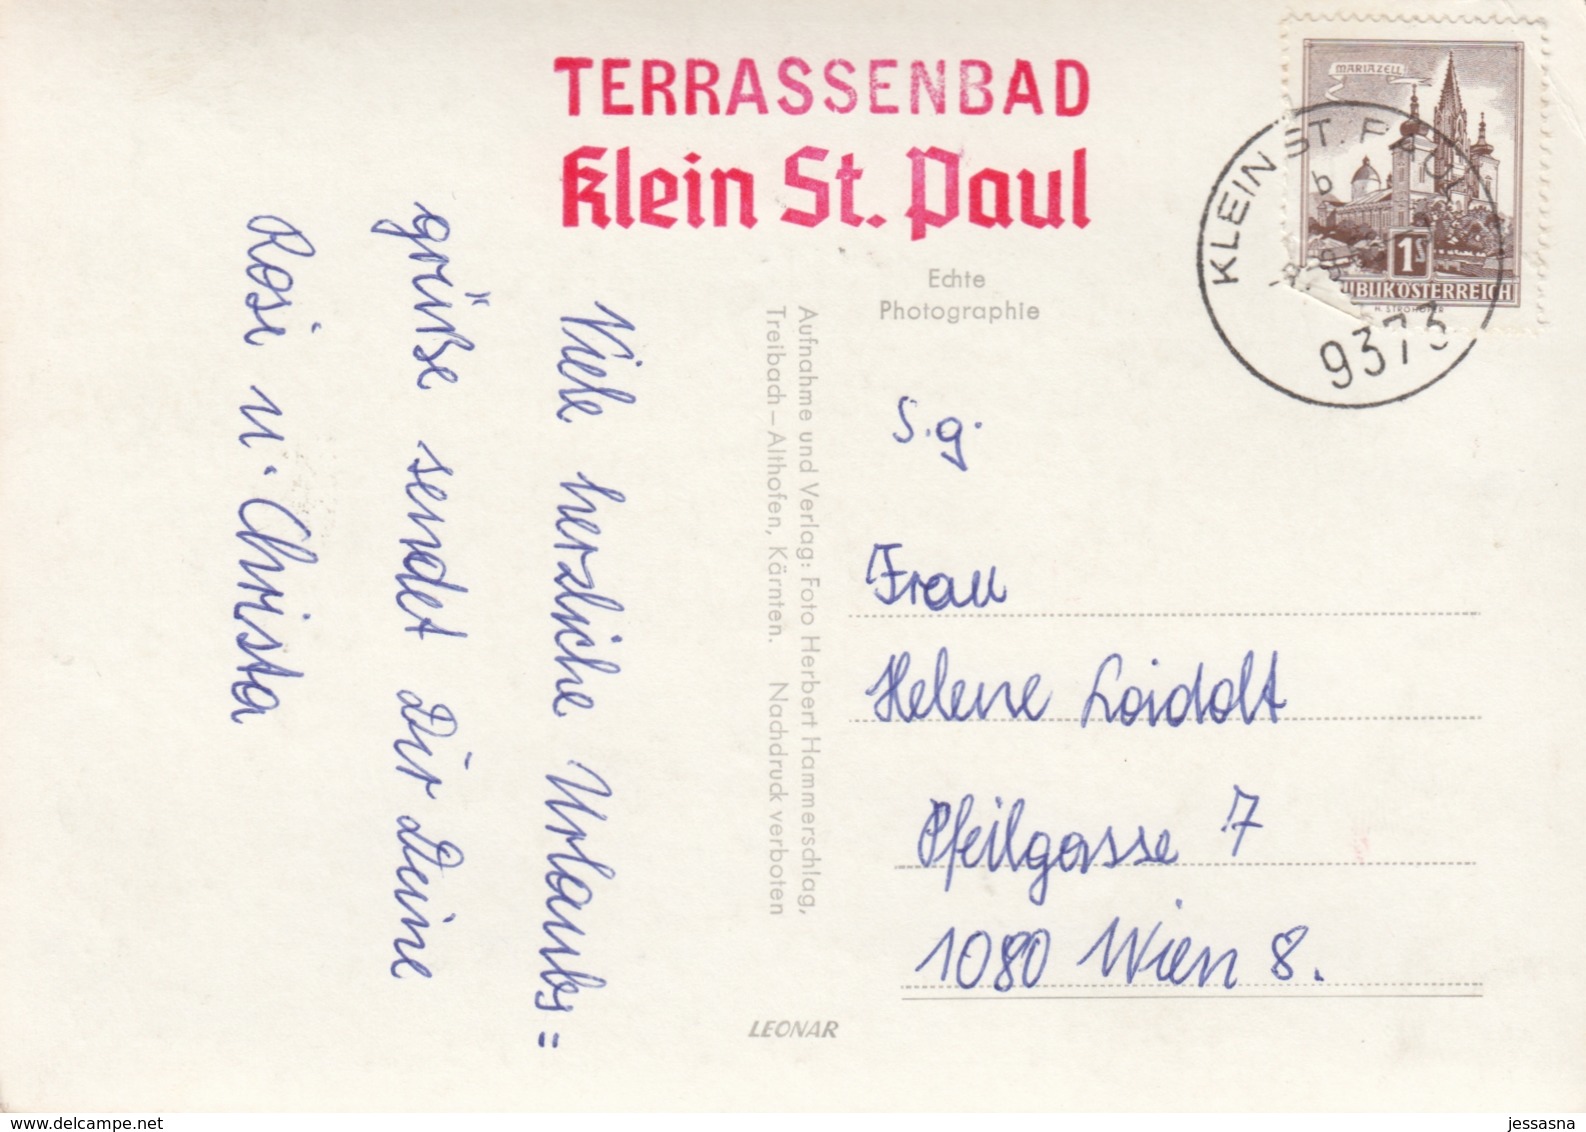 TERRASSENBAD
Klein St. Paul
MARIAZELL
1S
UBLIK ÖSTERREICH
KLEIN ST. PAUL
b
9373
Echte
Photographie
Viele herzliche Urlaubs=
grüße sendet Dir Deine
Rosi u. Christa
Aufnahme und Verlag: Foto Herbert Hammerschlag,
Treibach–Althofen, Kärnten. Nachdruck verboten
S.g.
Frau
Helene Loidolt
Pfeilgasse 7
1080 Wien 8.
LEONAR
delcampe.net
jessasna